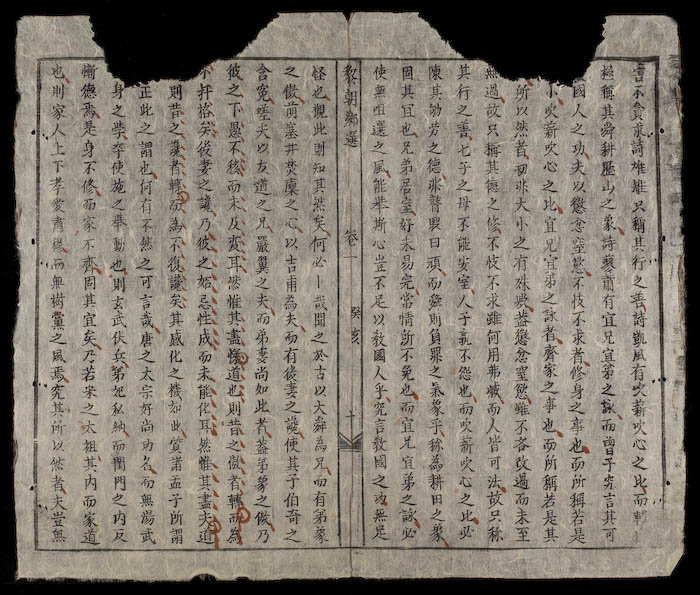 言不貪求詩雄雉只稱其行之善詩凱風有吹薪吹心之比而
極稱其舜耕歷山之象詩蓼蕭有宜兄宜弟之詠而曾子究言其可
國人之功夫以懲忿窒慾不忮不求者修身之事也而所稱若是
小吹薪吹心之比宜兄宜弟之詠者齊家之事也而所稱若是其
所以然者初非大小之有殊歟蓋懲忿窒慾雖不吝改過而未至
無過故只稱其德之修不忮不求雖何用弗臧而人皆可法故只稱
其行之善七子之母不能安室人子孰不怨也而吹薪吹心之比必
陳其劬勞之德非瞽瞍日頑而難則負罪之氣象乎稱為耕田之象
固其宜也兄弟居室好未易完常情所不免也而宜兄宜弟之詠必
使無咀選之風能舉斯心豈不足以教國人乎究言教國之功無足
黎朝鄉選 卷一 癸亥 十
怪也觀此則知其然矣何必一哉聞之於古以大舜為兄而有弟象
之傲前塞井焚廩之心以吉甫為夫而有後妻之讒使其子伯奇之
言冤嗟夫以友道之兄嚴翼之夫而弟妻尚如此者蓋弟象之傲乃
彼之下愚不移而未及变耳然惟其盡悌道也則昔之傲者轉而為
不扞格矣後妻之讒乃彼之妬忌性成而未能化耳然惟其盡夫道
則昔之讒者轉而為不復讒矣其感化之機如此質諸孟子所謂
正此之謂也何有不然之可言哉唐之太宗好尚功名而無湯武
身之学卒使施之舉動也則玄武伏兵弟妃私納而閨門之内反
慚德焉是身不修而家不齊固其宜矣乃若宋之太祖其内而家道
也則家人上下孝愛肅穆而無樹黨之風焉究其所以然者夫豈無